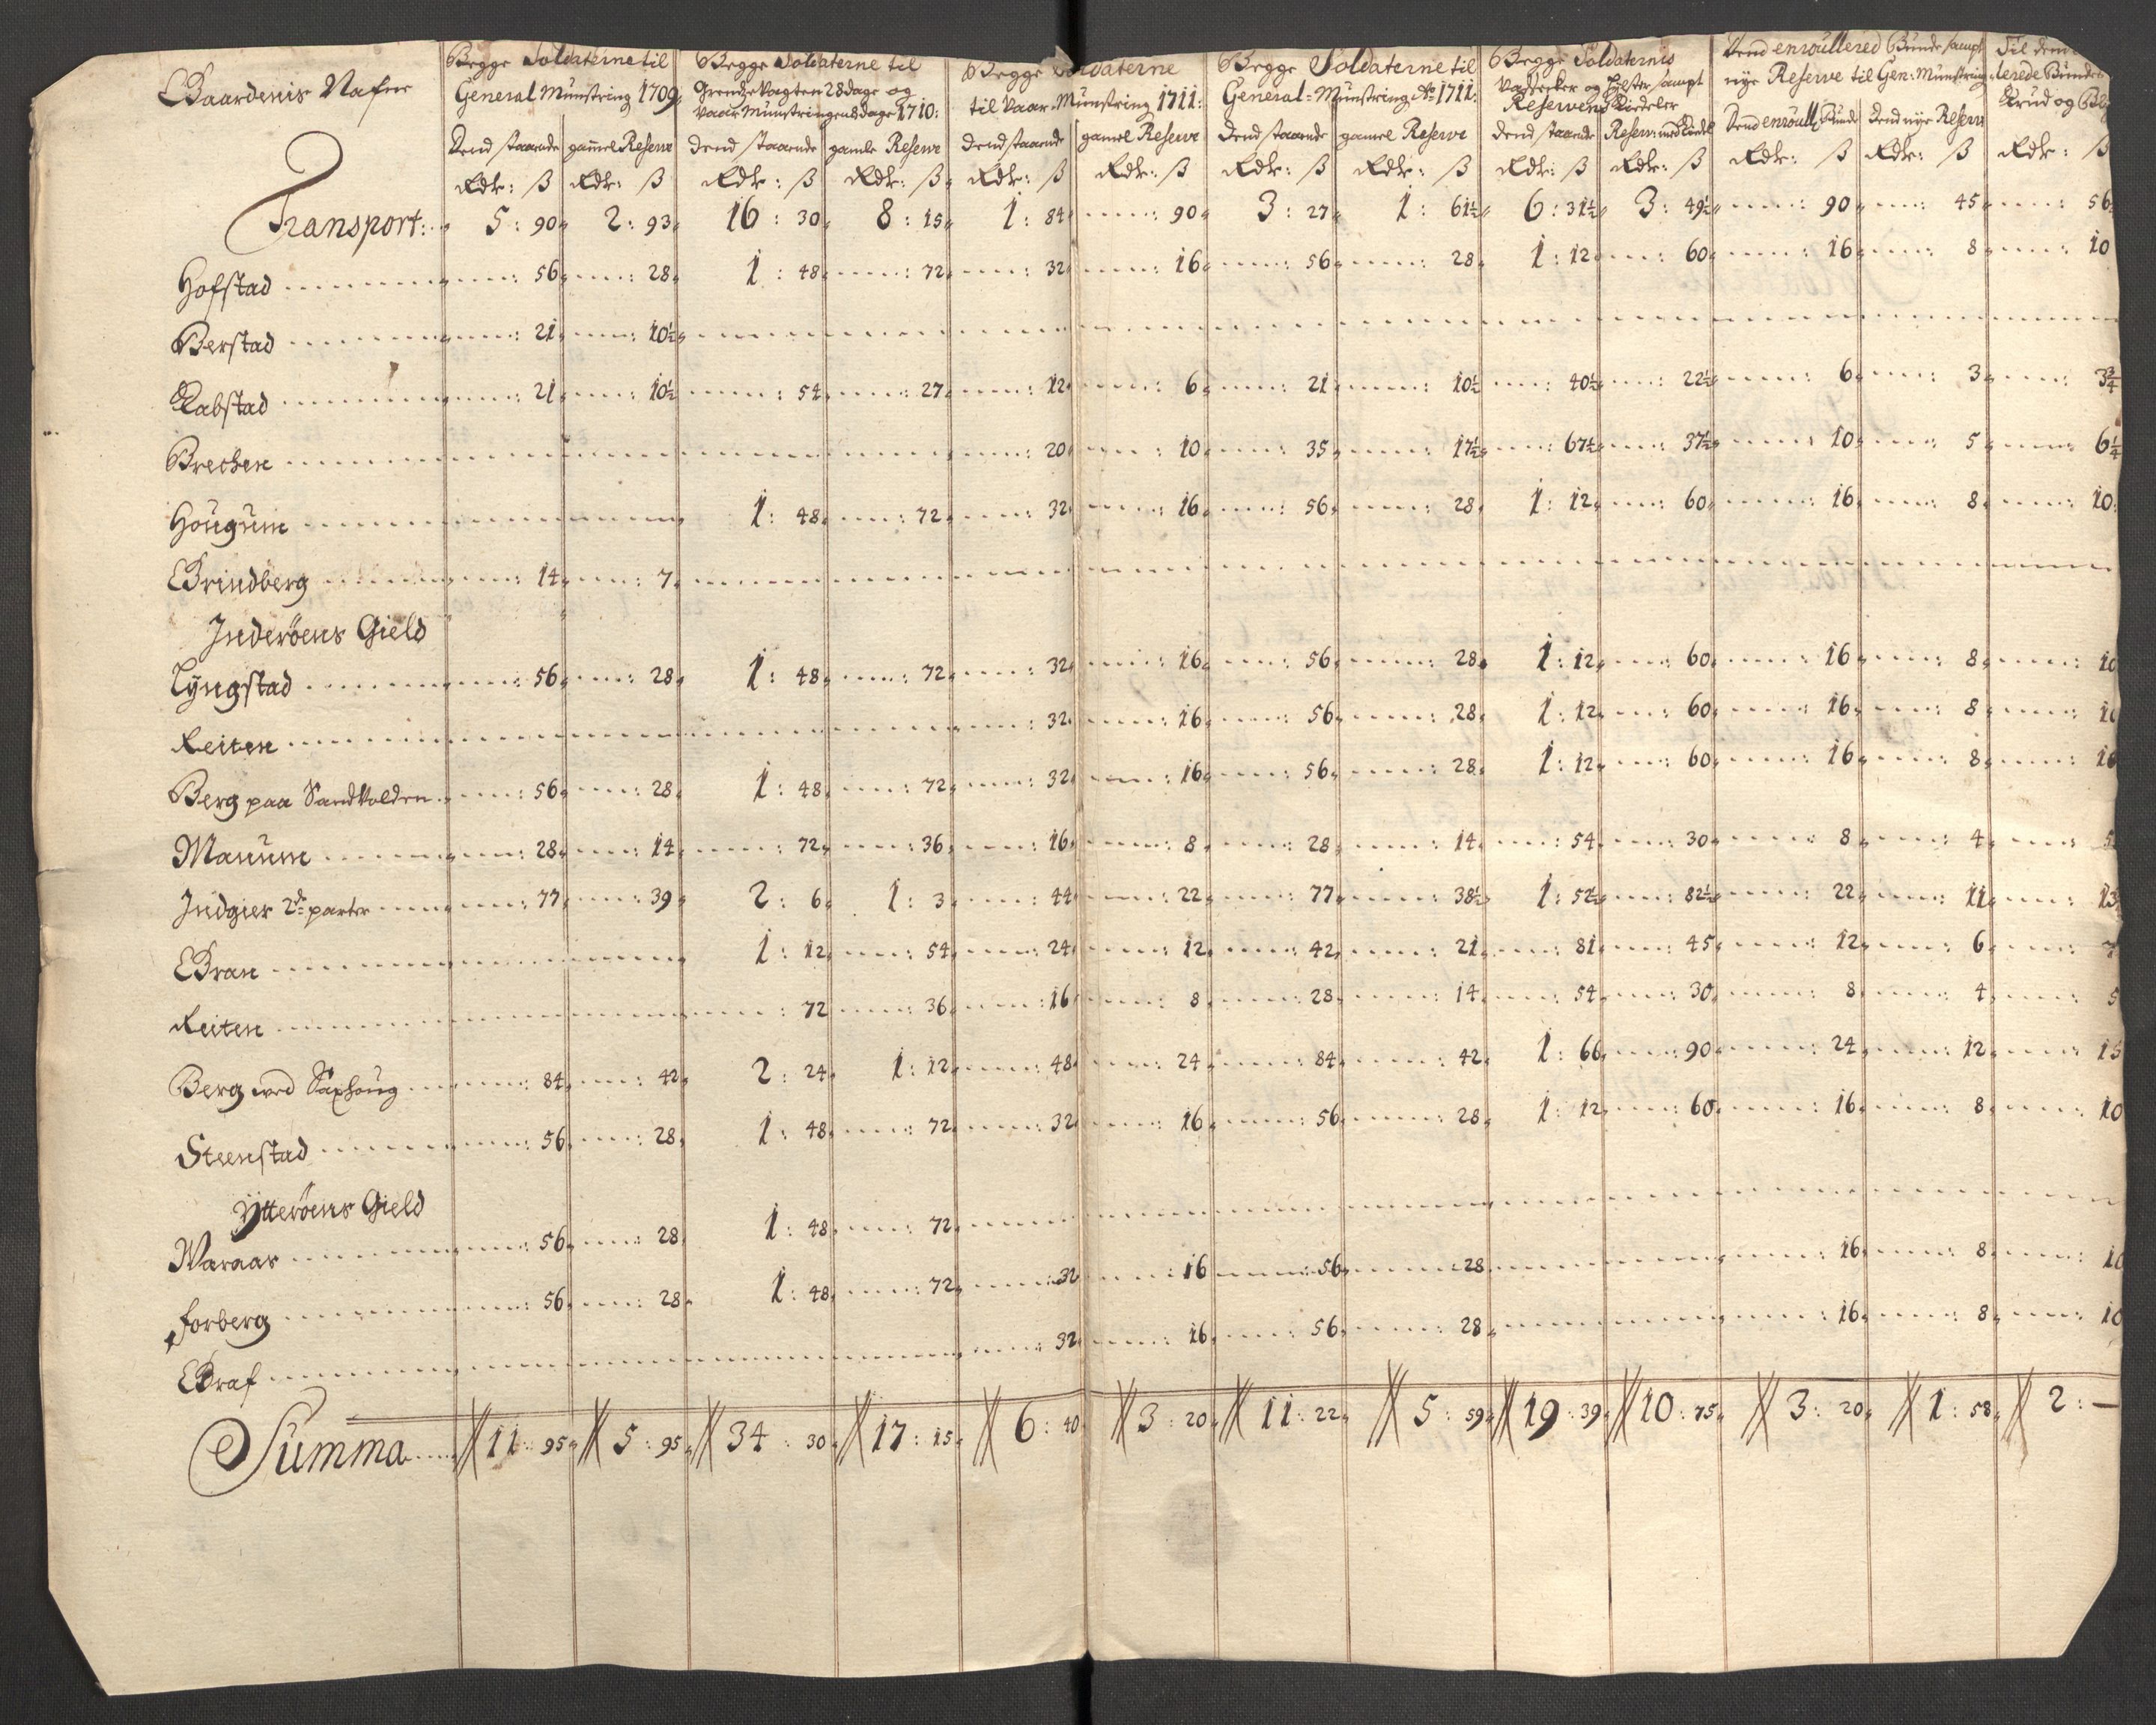 Gaardenis Nafne | Begge Soldaterne til General Münstring 1709: | Begge Soldaterne til Grendze Vagten 28 dage og Vaar Münstringens dage 1710: | Begge Soldaterne til Vaar-Münstring 1711: | Begge Soldaterne til General-Münstring Ao 1711: | Begge Soldaternis og sampt Reservens Kiedeler | Dend enroullered Bunde sampt nye Reserve til Gen: Münstring | Til den lerede Bunde Krud og
Dend staaende | gamel Reserve | dend staaende | gamle Reserve | dend staaende | gamel Reserve | dend staaende | gamel Reserve | dend staaende | Reserv: med Kiedel | Dend enroull: Bunde | Dend nye Reserv
Rdr: ß | Rdr: ß | Rdr: ß | Rdr: ß | Rdr: ß | Rdr: ß | Rdr: ß | Rdr: ß | Rdr: ß | Rdr: ß | Rdr: ß | Rdr: ß | Rdr: ß
Transport: | 5: 90 | 2: 93 | 16: 30 | 8: 15 | 1: 84 | : 90 | 3: 27 | 1: 61½ | 6: 31½ | 3: 49½ | : 90 | : 45 | : 56
Hofstad | : 56 | : 28 | 1: 48 | : 72 | : 32 | : 16 | : 56 | : 28 | 1: 12 | : 60 | : 16 | : 8 | : 10
Berstad | : 21 | : 10½
Rabstad | : 21 | : 10½ | : 54 | : 27 | : 12 | : 6 | : 21 | : 10½ | : 40½ | : 22½ | : 6 | : 3 | : 3¾
Brechen | : 20 | : 10 | : 35 | : 17½ | : 67½ | : 37½ | : 10 | : 5 | : 6¼
Hougum | 1: 48 | : 72 | : 32 | : 16 | : 56 | : 28 | 1: 12 | : 60 | : 16 | : 8 | : 10
Grindberg | : 14 | : 7
Inderöens Gield
Lyngstad | : 56 | : 28 | 1: 48 | : 72 | : 32 | : 16 | : 56 | : 28 | 1: 12 | : 60 | : 16 | : 8 | : 10
Reiten | : 32 | : 16 | : 56 | : 28 | 1: 12 | : 60 | : 16 | : 8 | : 10
Berg paa Sandvolden | : 56 | : 28 | 1: 48 | : 72 | : 32 | : 16 | : 56 | : 28 | 1: 12 | : 60 | : 16 | : 8 | : 10
Manum | : 28 | : 14 | : 72 | : 36 | : 16 | : 8 | : 28 | : 14 | : 54 | : 30 | : 8 | : 4 | : 5
Indgier 2de parter | : 77 | : 39 | 2: 6 | 1: 3 | : 44 | : 22 | : 77 | : 38½ | 1: 52½ | : 82½ | : 22 | : 11 | : 13
Gran | 1: 12 | : 54 | : 24 | : 12 | : 42 | : 21 | : 81 | : 45 | : 12 | : 6 | : 7
Reiten | : 72 | : 36 | : 16 | : 8 | : 28 | : 14 | : 54 | : 30 | : 8 | : 4 | : 5
Berg ved Saxhoug | : 84 | : 42 | 2: 24 | 1: 12 | : 48 | : 24 | : 84 | : 42 | 1: 66 | : 90 | : 24 | : 12 | : 15
Steenstad | : 56 | : 28 | 1: 48 | : 72 | : 32 | : 16 | : 56 | : 28 | 1: 12 | : 60 | : 16 | : 8 | : 10
Ytteröens Gield
Waraas | : 56 | : 28 | 1: 48 | : 72
Forberg | : 56 | : 28 | 1: 48 | : 72 | : 32 | : 16 | : 56 | : 28 | : 16 | : 8 | : 10
Graf | : 32 | : 16 | : 56 | : 28 | : 16 | : 8 | : 10
Summa | 11: 95 | 5: 95 | 34: 30 | 17: 15 | 6: 40 | 3: 20 | 11: 22 | 5: 59 | 19: 39 | 10: 75 | 3: 20 | 1: 58 | 2: —